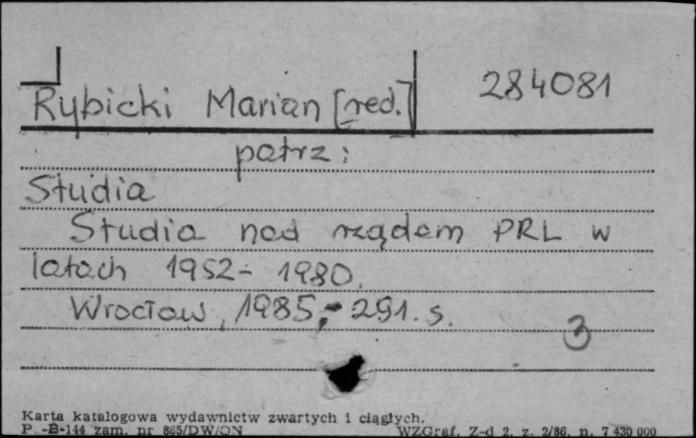 Rybicki Marian [red.] 284081
patrz:
Studia
Studia nad rządem PRL w
latach 1952-1980.
Wrocław, 1985,- 291. s.
3
Karta katalogowa wydawnictw zwartych i ciągłych.
P.-B-144 zam. nr 865/DW/ON WZGraf. Z-d 2, z. 2/86, n. 7 430 000